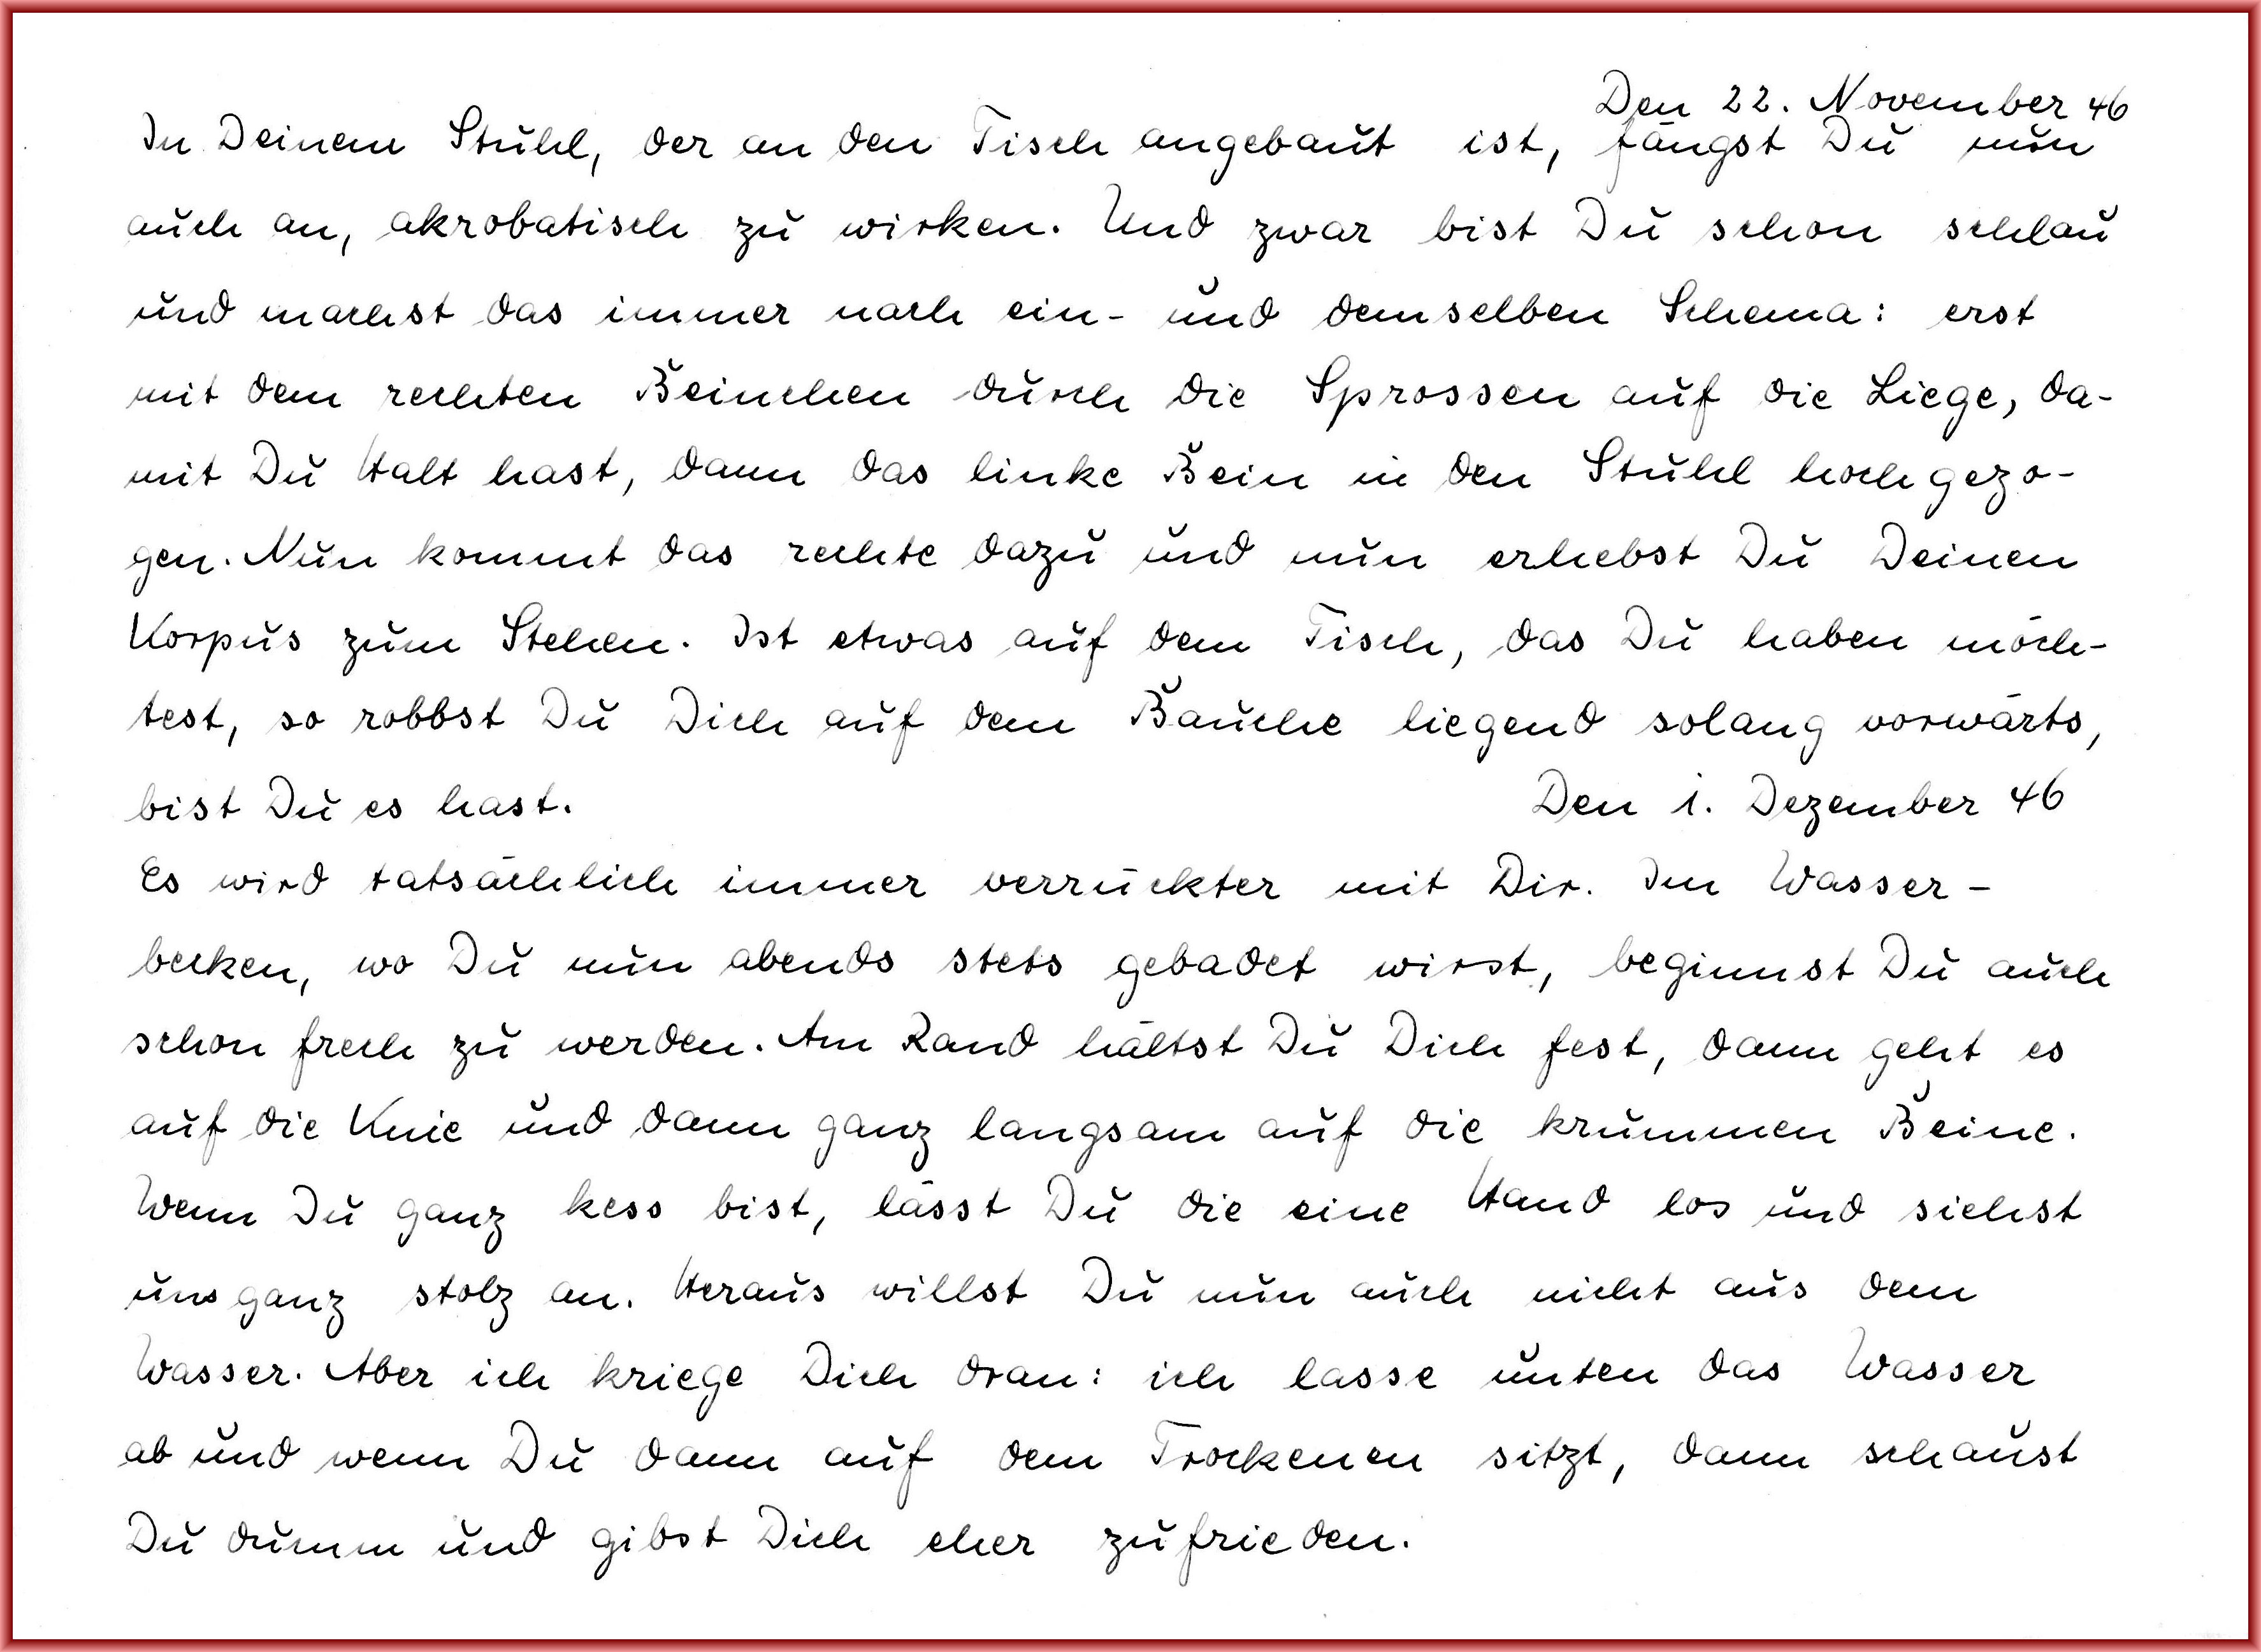 Den 22. November 46
In Deinem Stuhl, der an den Tisch angebaut ist, fängst Du nun
auch an, akrobatisch zu wirken. Und zwar bist Du schon schlau
und machst das immer nach ein- und demselben Schema: erst
mit dem rechten Beinchen durch die Sprossen auf die Liege, da-
mit Du Halt hast, dann das linke Bein in den Stuhl hochgezo-
gen. Nun kommt das rechte dazu und nun erhebst Du Deinen
Korpus zum Stehen. Ist etwas auf dem Tisch, das Du haben möch-
test, so robbst Du Dich auf dem Bauche liegend solang vorwärts,
bist Du es hast.
Den 1. Dezember 46
Es wird tatsächlich immer verrückter mit Dir. Im Wasser-
becken, wo Du nun abends stets gebadet wirst, beginnst Du auch
schon frech zu werden. Am Rand hältst Du Dich fest, dann geht es
auf die Knie und dann ganz langsam auf die krummen Beine.
Wenn Du ganz kess bist, lässt Du die eine Hand los und siehst
uns ganz stolz an. Heraus willst Du nun auch nicht aus dem
Wasser. Aber ich kriege Dich dran: ich lasse unten das Wasser
ab und wenn Du dann auf dem Trockenen sitzt, dann schaust
Du dumm und gibst Dich eher zufrieden.